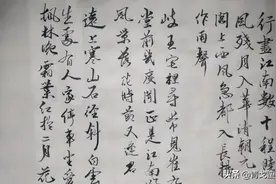 行盡江南數十程曉
風殘月入華清朝元
閣上西風急都入長楊
作雨聲
岐王宅裡尋常見崔九
堂前幾度聞正是江南好
風景落花時節又逢君
遠上寒山石徑斜白雲
生處有人家停車坐愛
楓林晚霜葉紅於二月花